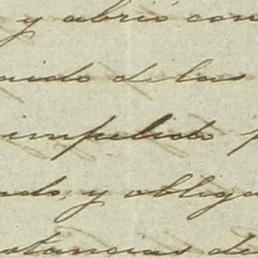 y abrió con
nido de las
impelido p
ado, y obliga
stancias de